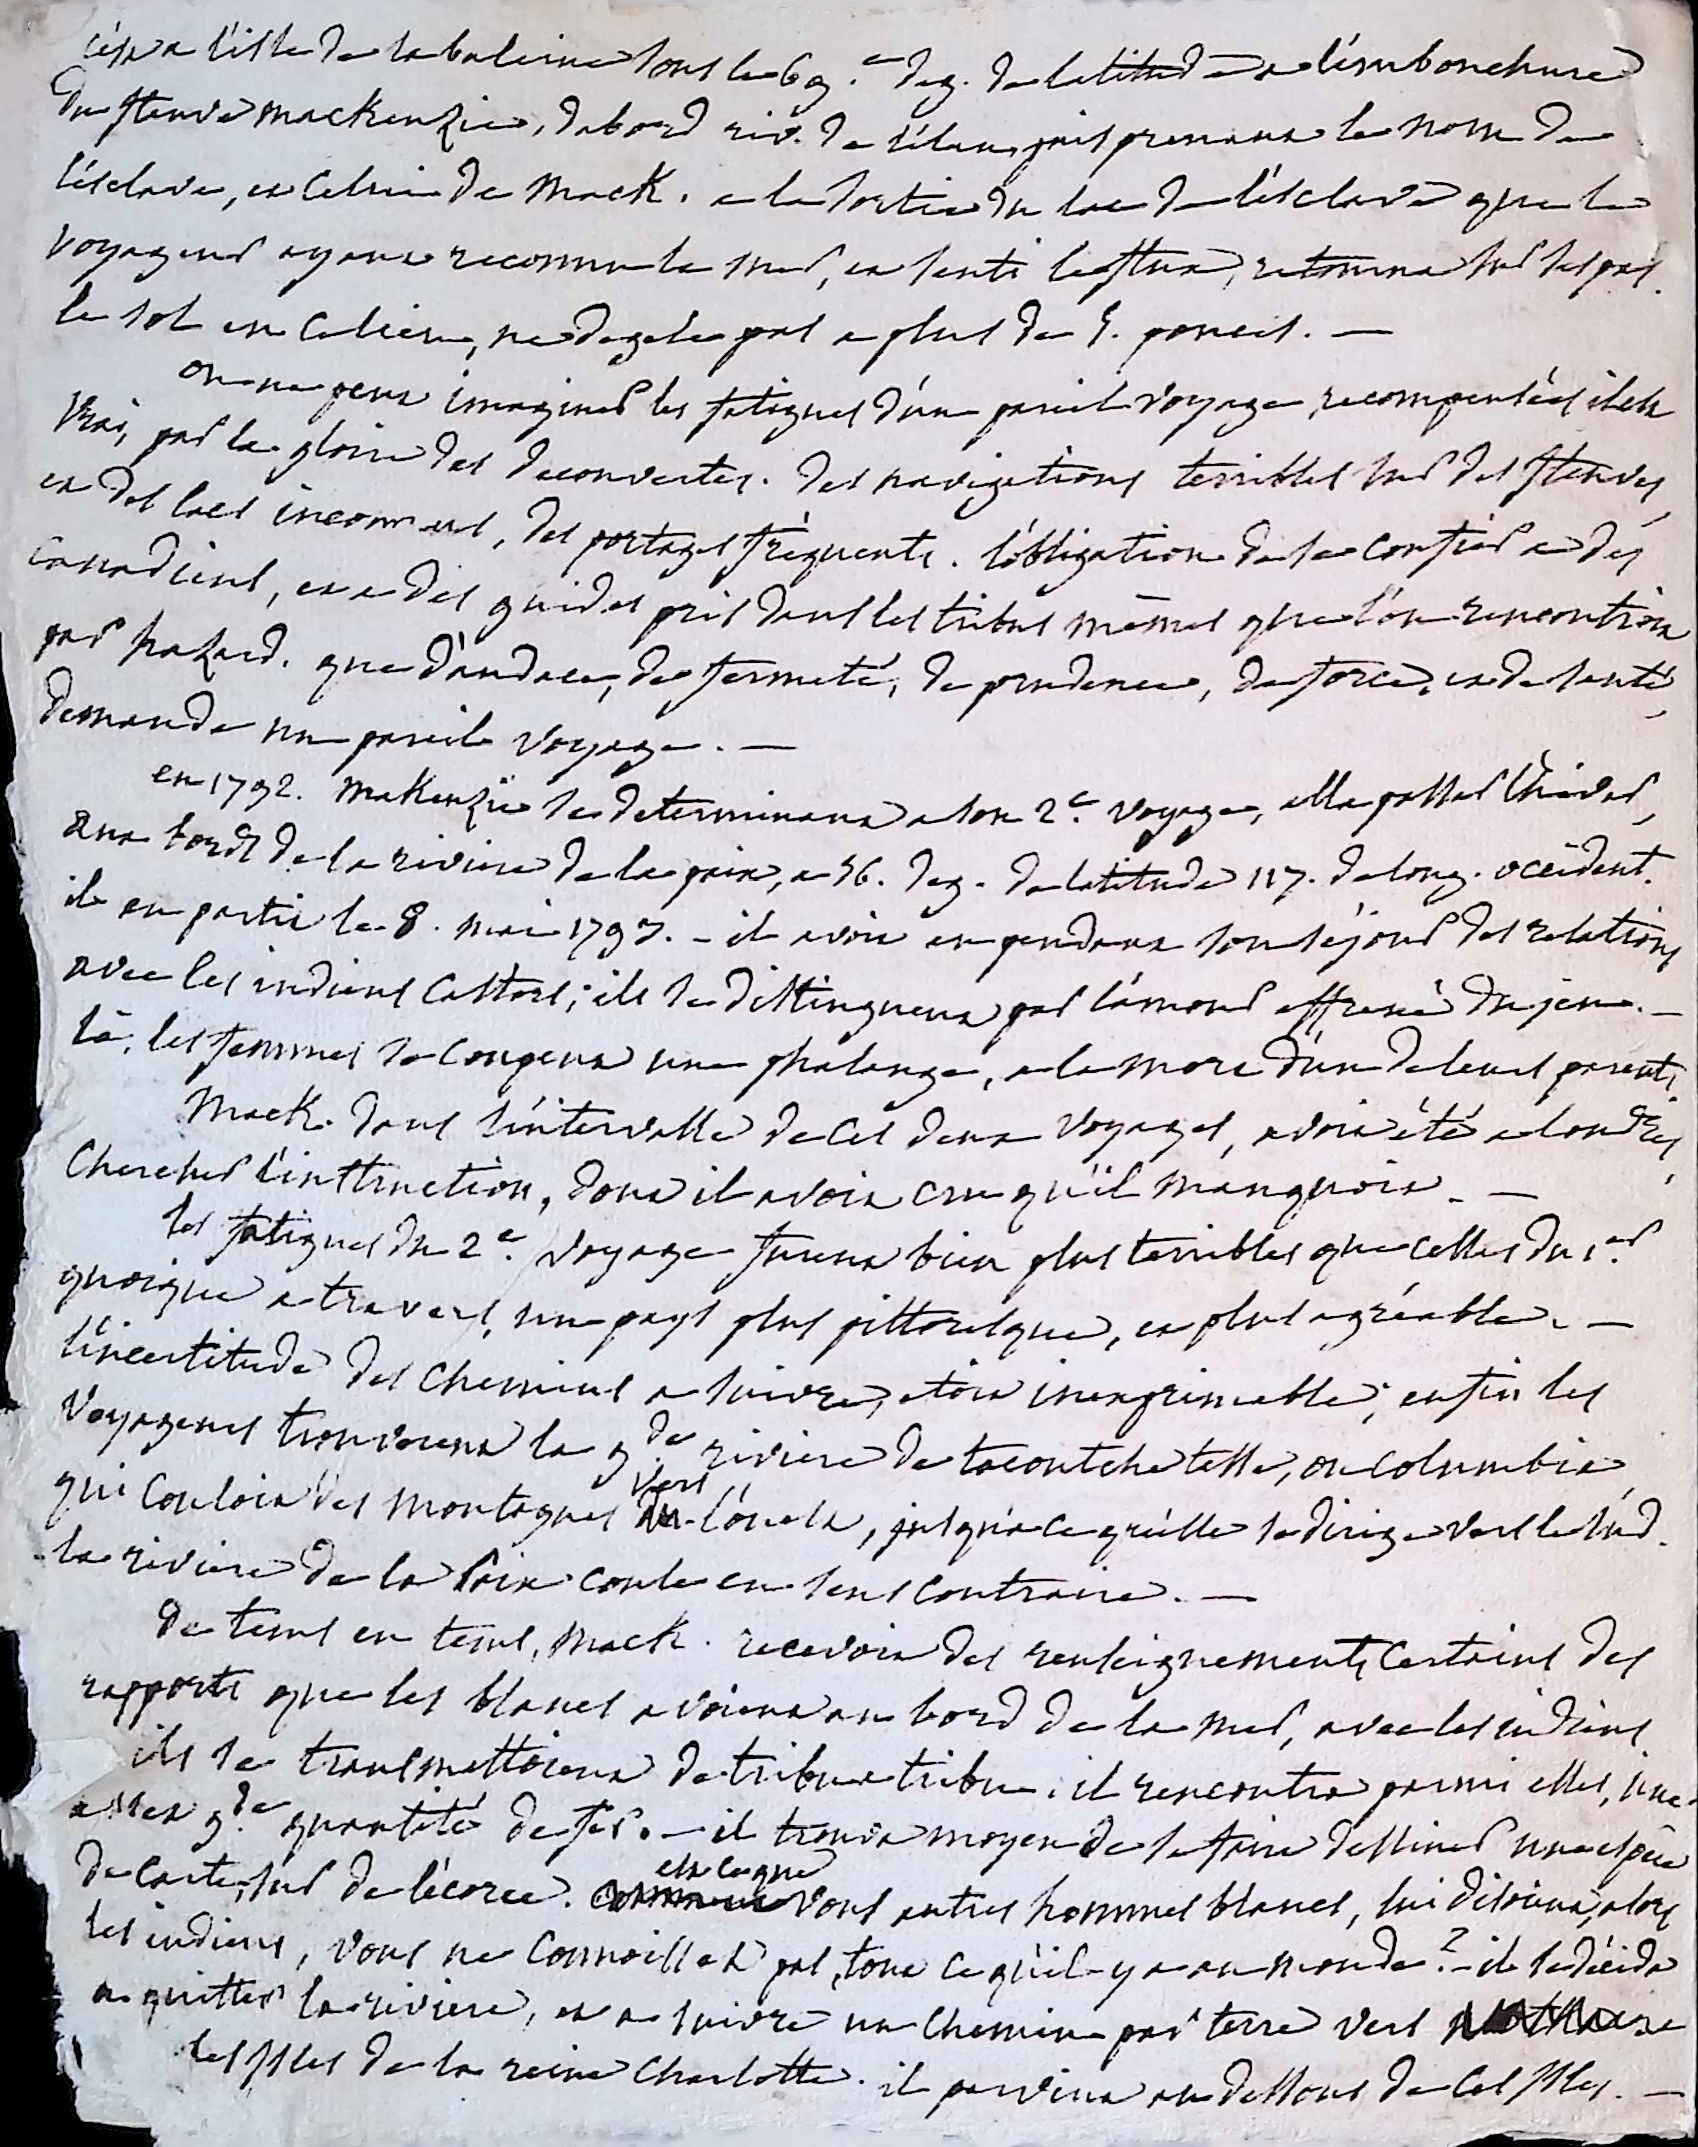 c'est a l'isle de la baleine sous le 69.e deg. de latitude a l'embouchure
du fleuve mackenzie, dabord riv. de l'élan, puis prenant le nom de
l'ésclave, et celui de Mack. a la sortie du lac de l'ésclave que le
voyageur ayant reconnu la mer, et senti le flux, retourna sur ses pas.
le sol en ce lieu, ne dégele pas a plus de 5. pouces. —
on ne peut imaginer les fatigues d'un pareil voyage, recompensées il est
vrai, par la gloire des decouvertes. des navigations terribles sur des fleuves,
et des lacs inconnus, des portages fréquents. l'obligation de se confier a des
canadiens, et a des guides pris dans les tribus mêmes que l'on rencontroit
par hazard. que d'audace, de fermeté, de prudence, de force, et de santé,
demande un pareil voyage. —
en 1792. Makenzie se determinant a son 2.e voyage, alla passer l'hiver,
aux bords de la riviere de la paix, a 56. deg. de latitude 117. de long. occident.
il en partit le 8. mai 1793. – il avoit eu pendant son séjour des relations
avec les indiens Castors; ils se distinguent par l'amour effrené du jeu. –
là, les femmes se coupent une phalange, a la mort d'un de leurs parents.
Mack. dans l'intervalle de ces deux voyages, avoit été a londres,
chercher l'instruction, dont il avoit cru qu'il manquoit. —
les fatigues du 2.e voyage furent bien plus terribles que celles du 1.er
quoique a travers, un pays plus pittoresque, et plus agréable. —
l'incertitude des chemins a suivre, etoit inexprimable; enfin les
voyageurs trouverent la g.de riviere de tacoutche tesse, ou columbia,
qui couloit des montagnes vers l'ouest, jusqu'a ce qu'elle se dirige vers le sud.
la riviere de la Paix coule en sens contraire. —
de tems en tems, Mack. recevoit des renseignements certains des
rapports que les blancs avoient au bord de la mer, avec les indiens
ils se transmettoient de tribu a tribu. il rencontra parmi elles, une
assez g.de quantité de fer. – il trouva moyen de se faire dessiner une espèce
de carte, sur de l'écorce. est ce que vous autres hommes blancs, lui disoient, alors
les indiens, vous ne connoissez pas, tout ce qu'il y a au monde? – il se décida
a quitter la riviere, et a suivre un chemin par terre vers
les Isles de la reine Charlotte. il parvint au dessous de ces Isles. —